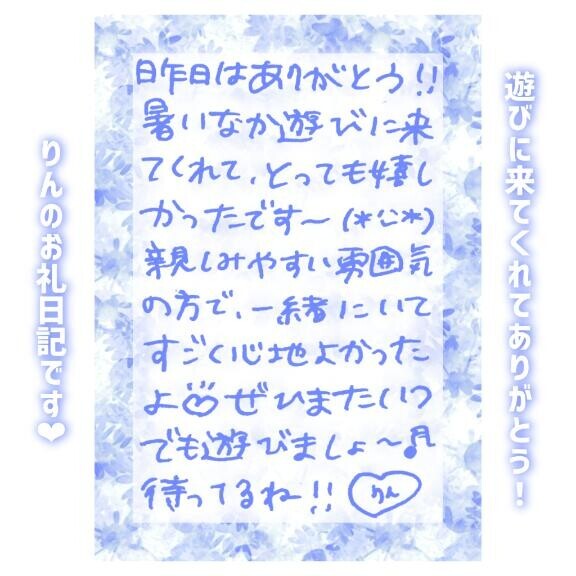 遊びに来てくれてありがとう！
昨日はありがとう!!
暑いなか遊びに来
てくれて、とっても嬉し
かったです〜(*^^*)
親しみやすい雰囲気
の方で、一緒にいて
すごく心地よかった
よ♡ ぜひまたいつ
でも遊びましょ〜♬
待ってるね!! りん
りんのお礼日記です❤